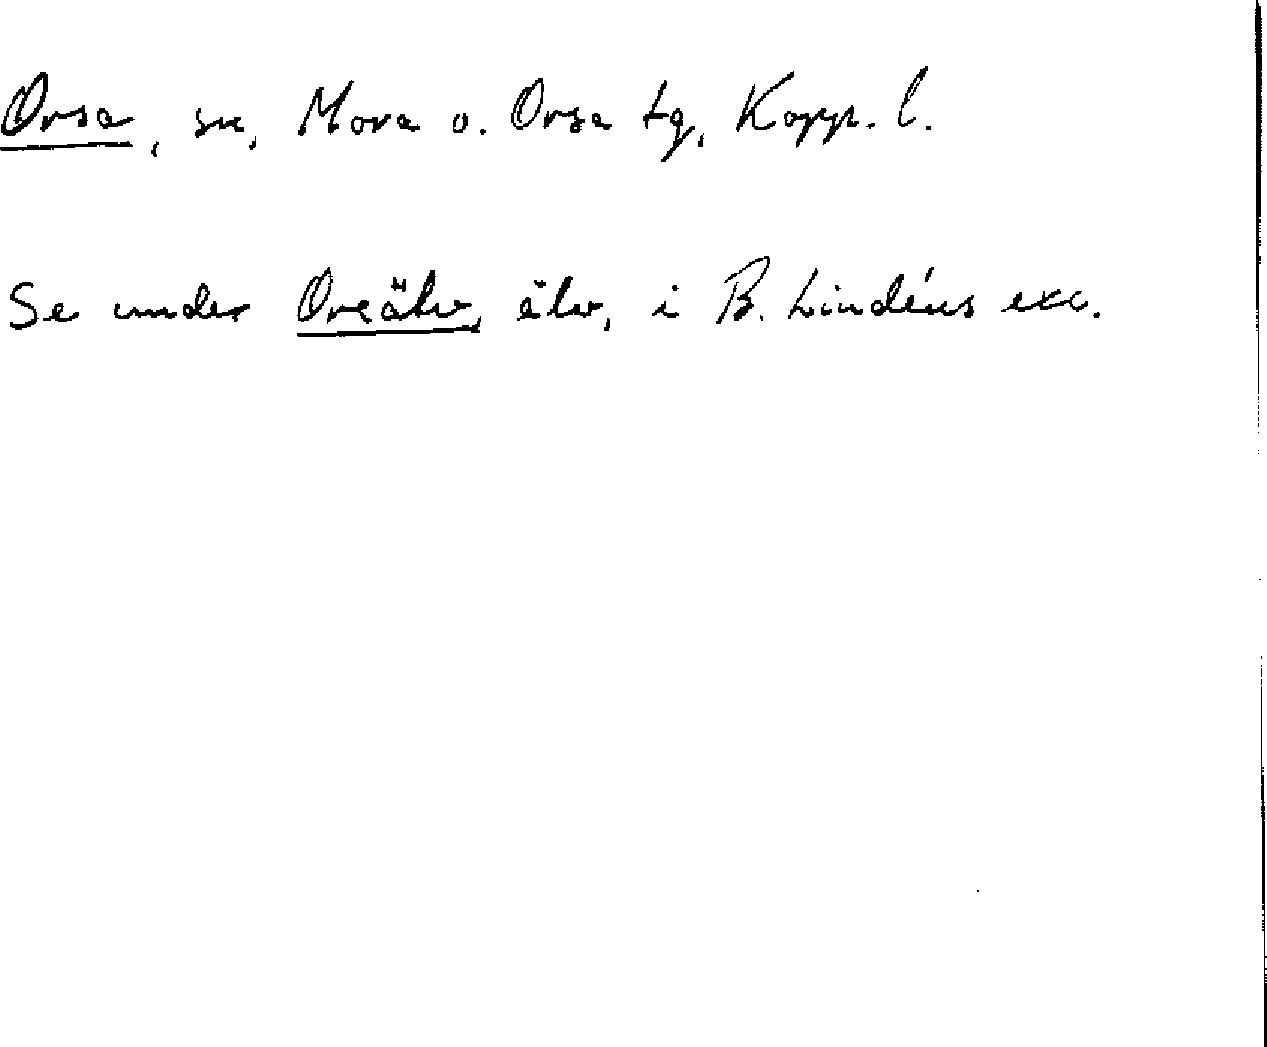 Orsa, sn, Mora o. Orsa tg, Kopp. l.
Se under Oreälv, älv, i B. Lindéns exc.